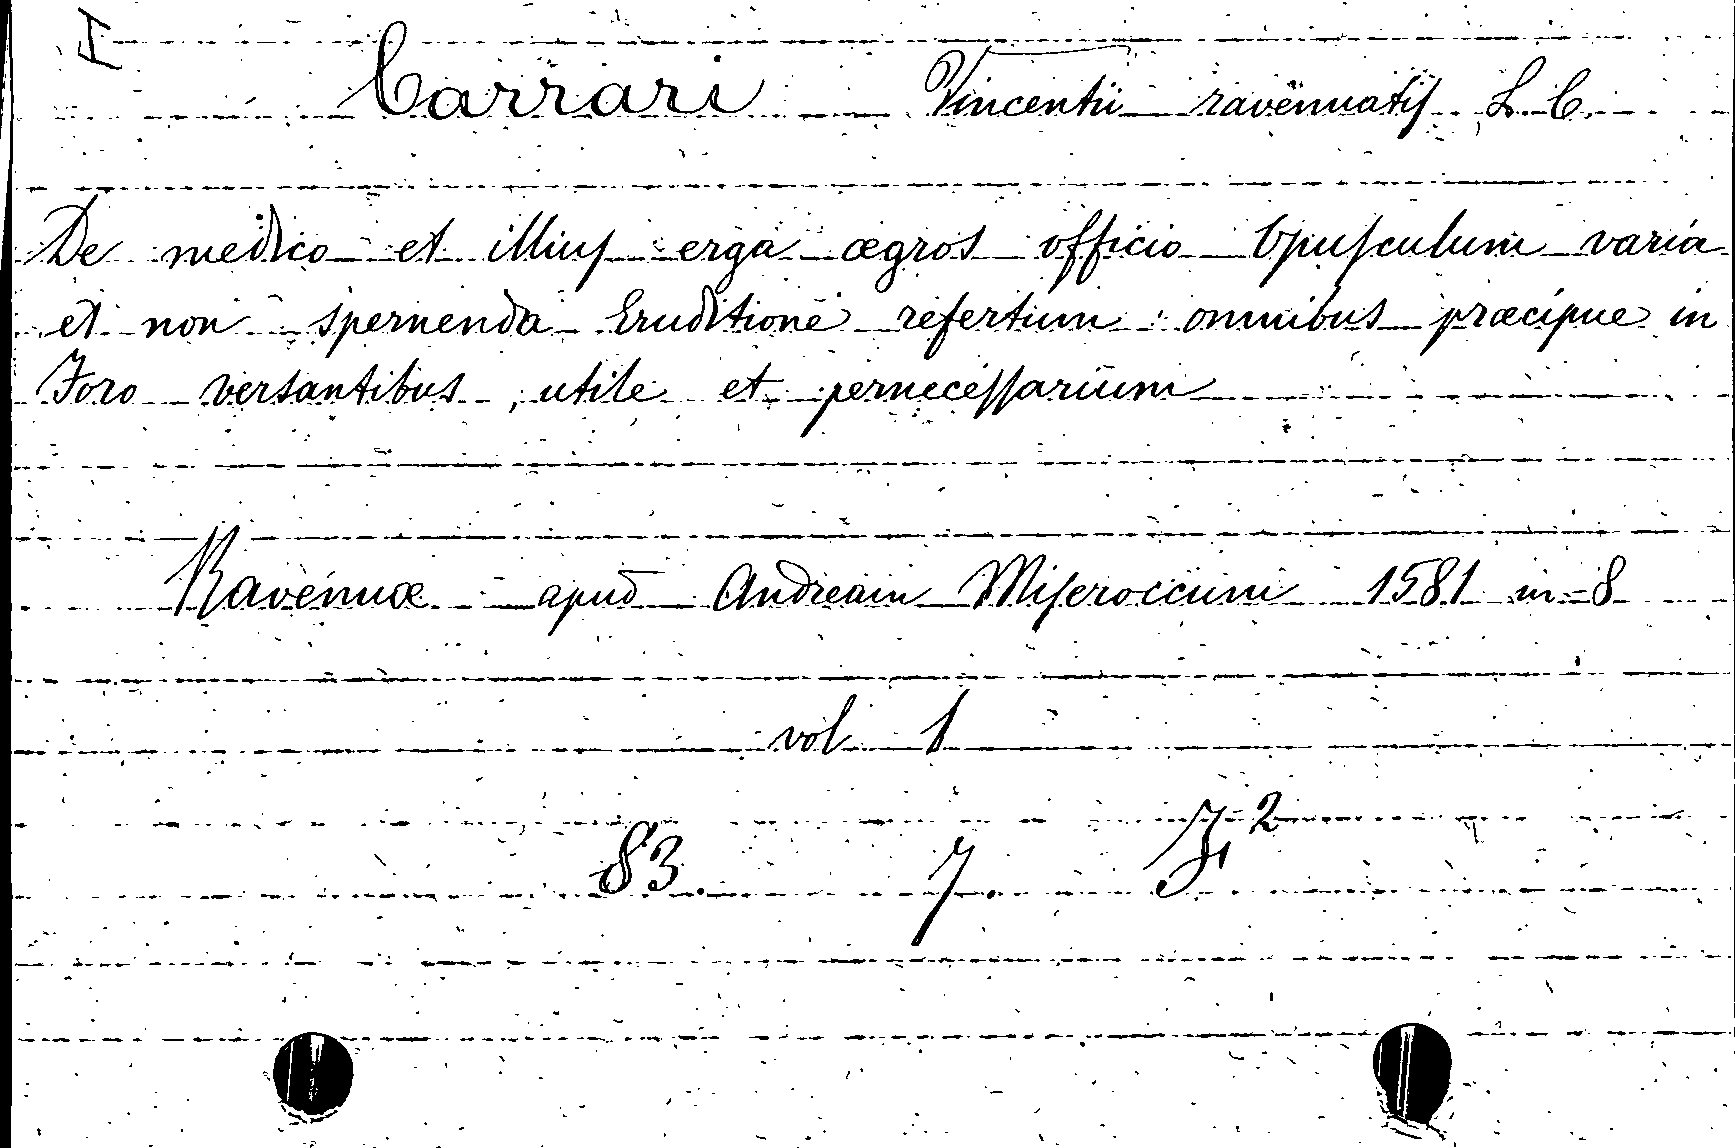 I
Carrari Vincentii ravennatis L. C.
De medico et illius erga ægros officio Opusculum varia
et non spernenda Eruditione refertum omnibus præcipue in
Foro versantibus, utile et pernecessarium
Ravennæ apud Andream Miseroccum 1581 in-8
vol 1
83. 7. F²